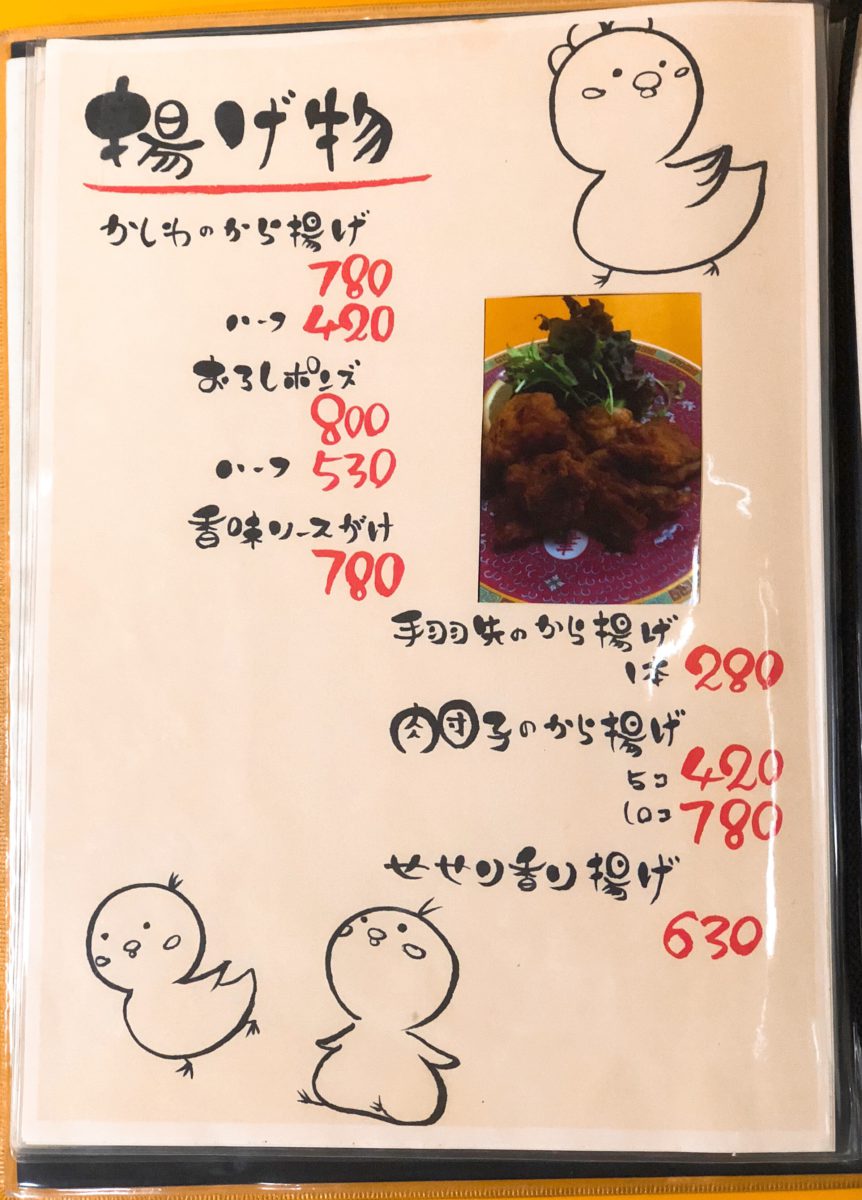 揚げ物
かしわのから揚げ
780
ハーフ 420
おろしポンズ
800
ハーフ 530
香味ソースがけ
780
手羽先のから揚げ
1本 280
肉団子のから揚げ
5コ 420
10コ 780
せせり香り揚げ
630